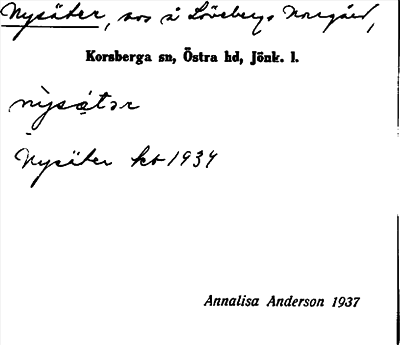 Nysäter, sos å Lövebergs Norrgård,
Korsberga sn, Östra hd, Jönk. l.
nỳsǽtər
Nysäter kb 1934
Annalisa Anderson 1937